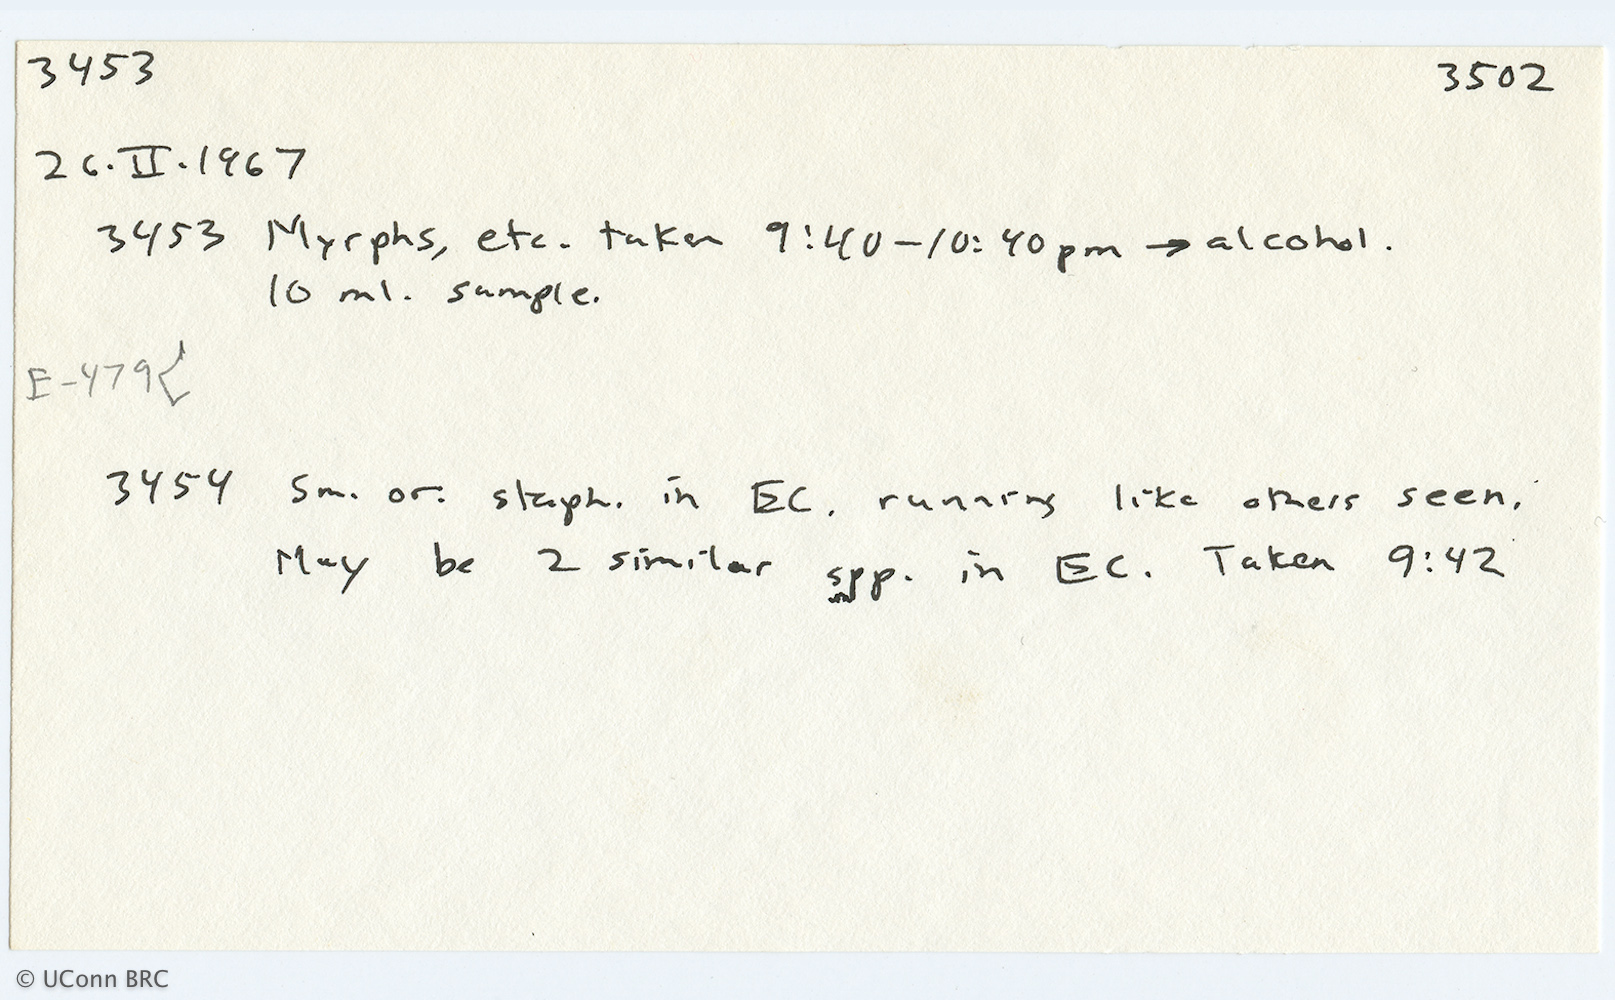 3453 3502
26.II.1967
3453 Myrphs, etc. taken 9:40-10:40pm → alcohol.
10 ml. sample.
E-479{
3454 Sm. or. staph. in EC. running like others seen.
May be 2 similar spp. in EC. Taken 9:42
© UConn BRC